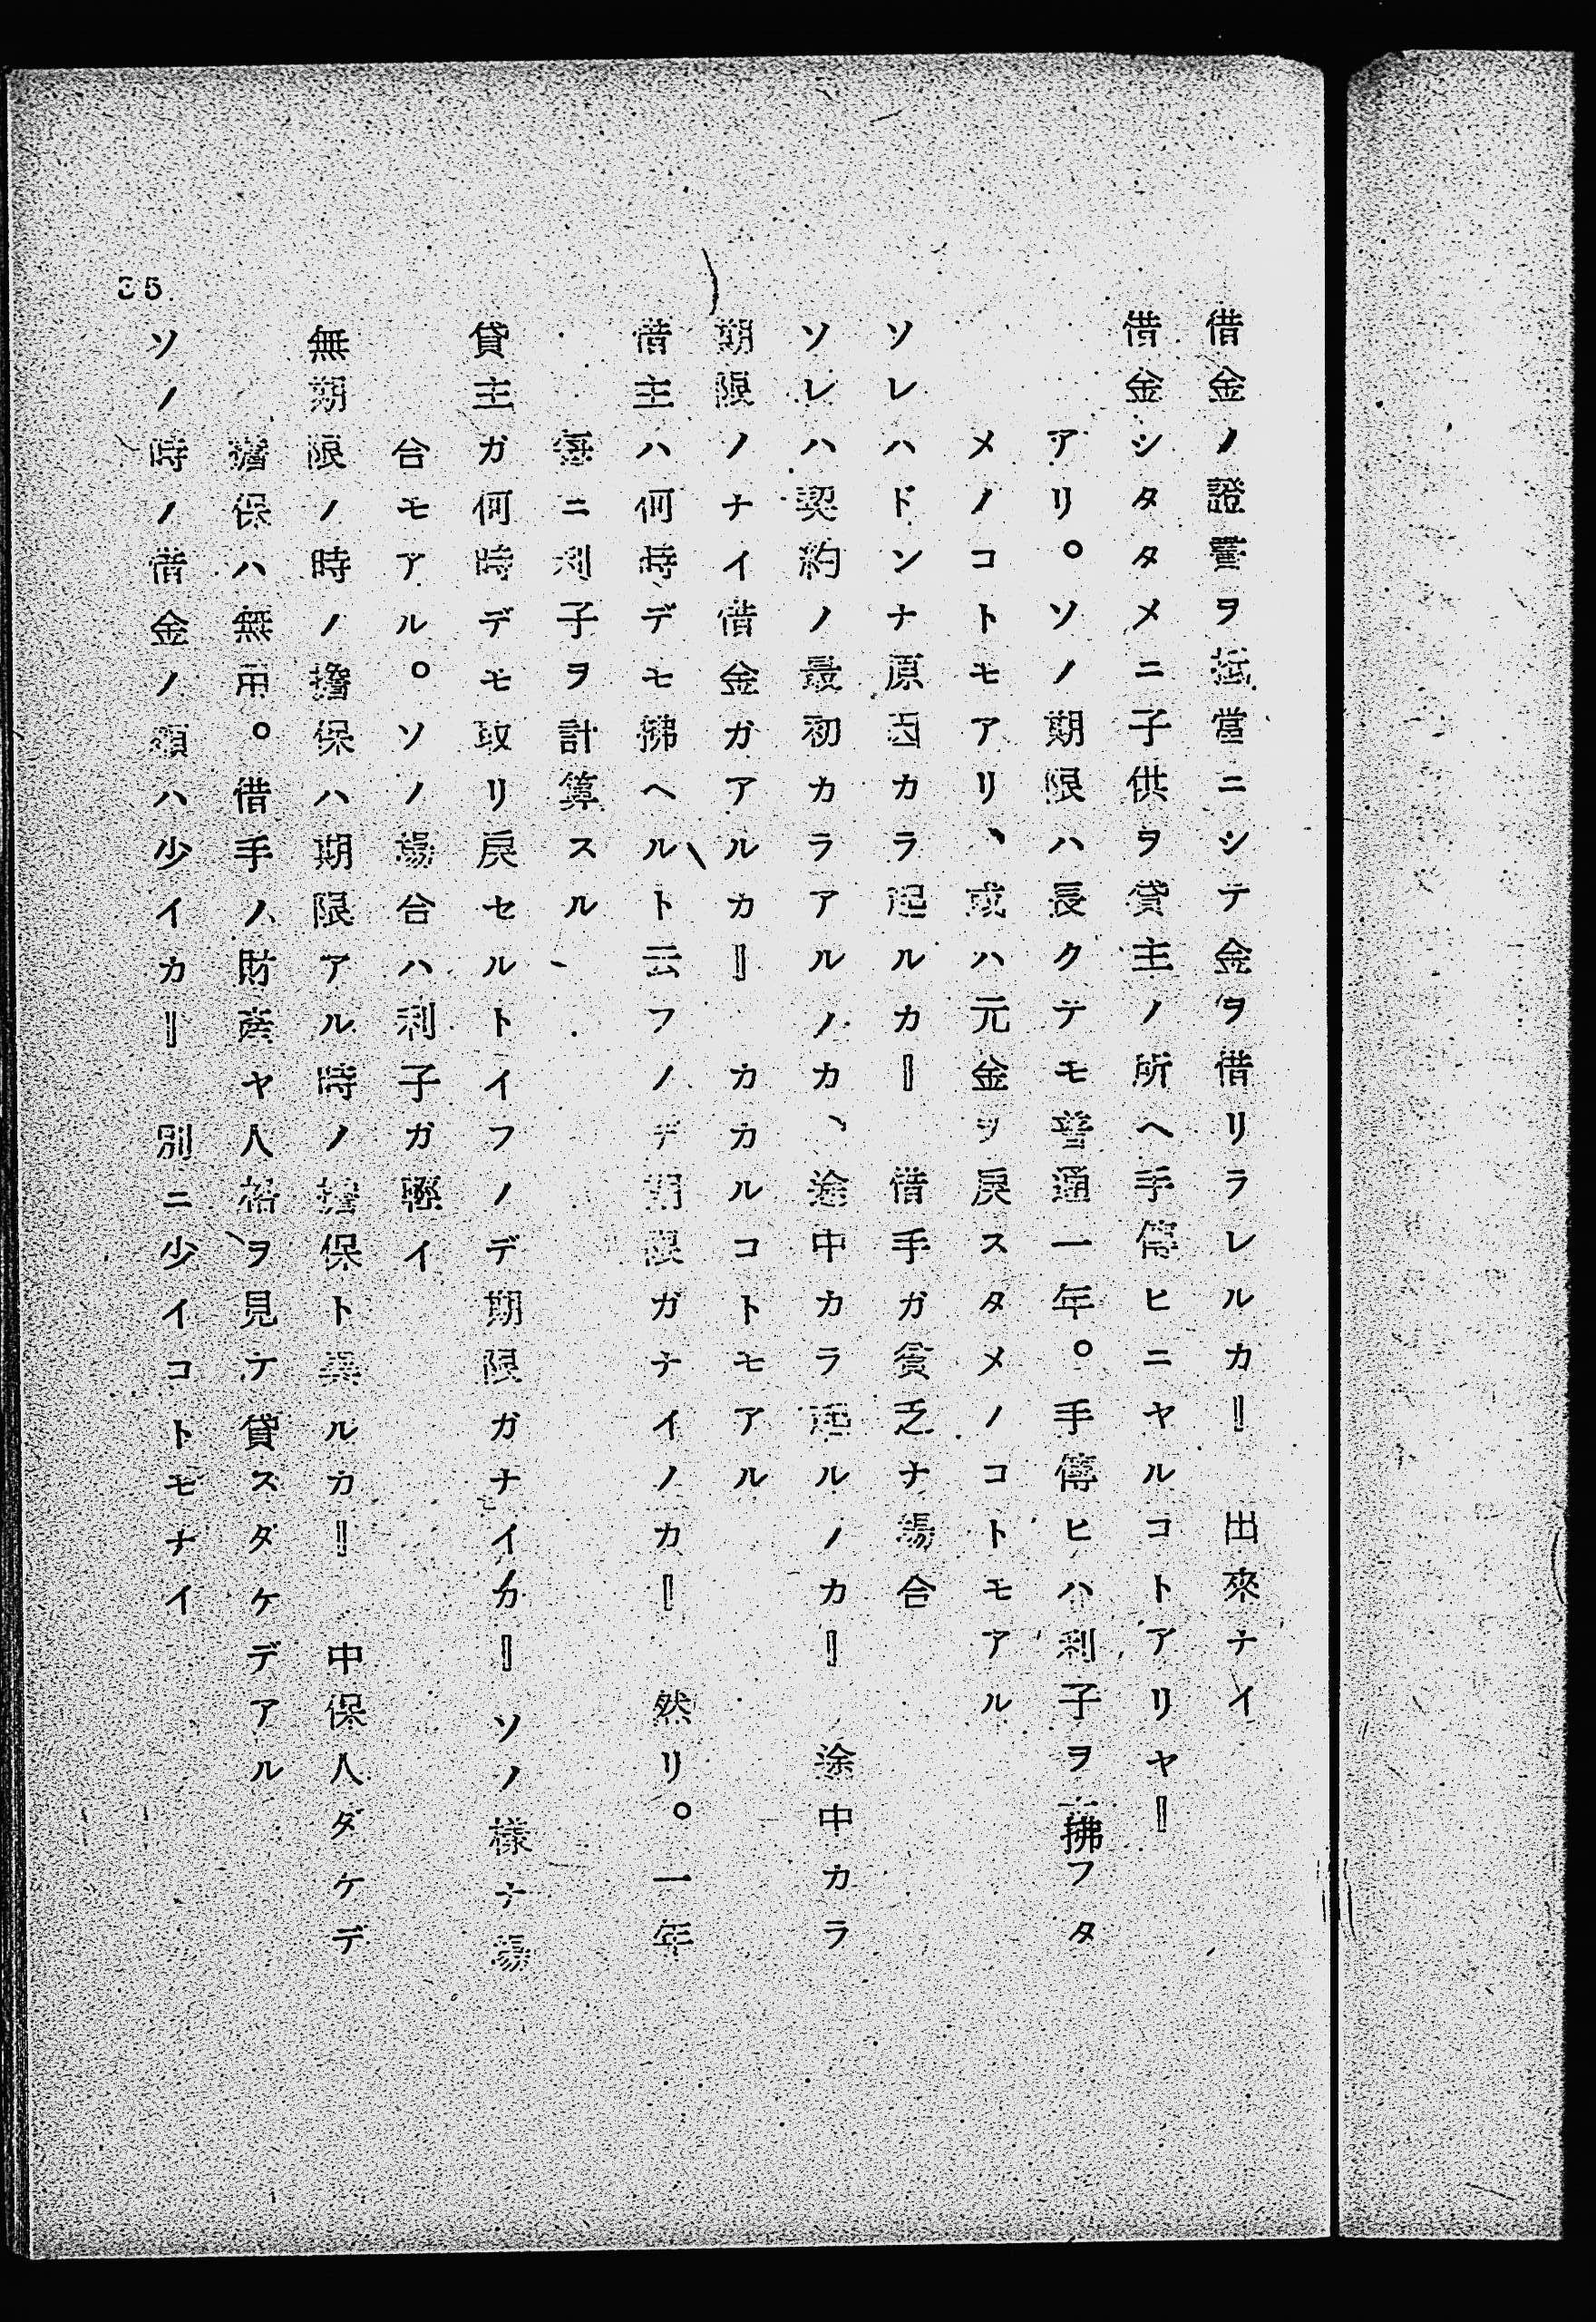 借金ノ證書ヲ抵當ニシテ金ヲ借リラレルカ‖　出來ナイ
借金シタタメニ子供ヲ貸主ノ所ヘ手傳ヒニヤルコトアリヤ‖
アリ。ソノ期限ハ長クテモ普通一年。手傳ヒハ利子ヲ拂フタ
メノコトモアリ、或ハ元金ヲ戾スタメノコトモアル
ソレハドンナ原因カラ起ルカ‖　借手ガ貧乏ナ場合
ソレハ契約ノ最初カラアルノカ、途中カラ起ルノカ‖　途中カラ
期限ノナイ借金ガアルカ‖　カカルコトモアル
借主ハ何時デモ拂ヘルト云フノデ期限ガナイノカ‖　然リ。一年
每ニ利子ヲ計算スル
貸主ガ何時デモ取リ戾セルトイフノデ期限ガナイカ‖ソノ樣ナ場
合モアル。ソノ場合ハ利子ガ輕イ
無期限ノ時ノ擔保ハ期限アル時ノ擔保ト異ルカ‖　中保人ダケデ
擔保ハ無用。借手ノ財產ヤ人格ヲ見テ貸スダケデアル
ソノ時ノ借金ノ額ハ少イカ‖　別ニ少イコトモナイ
35